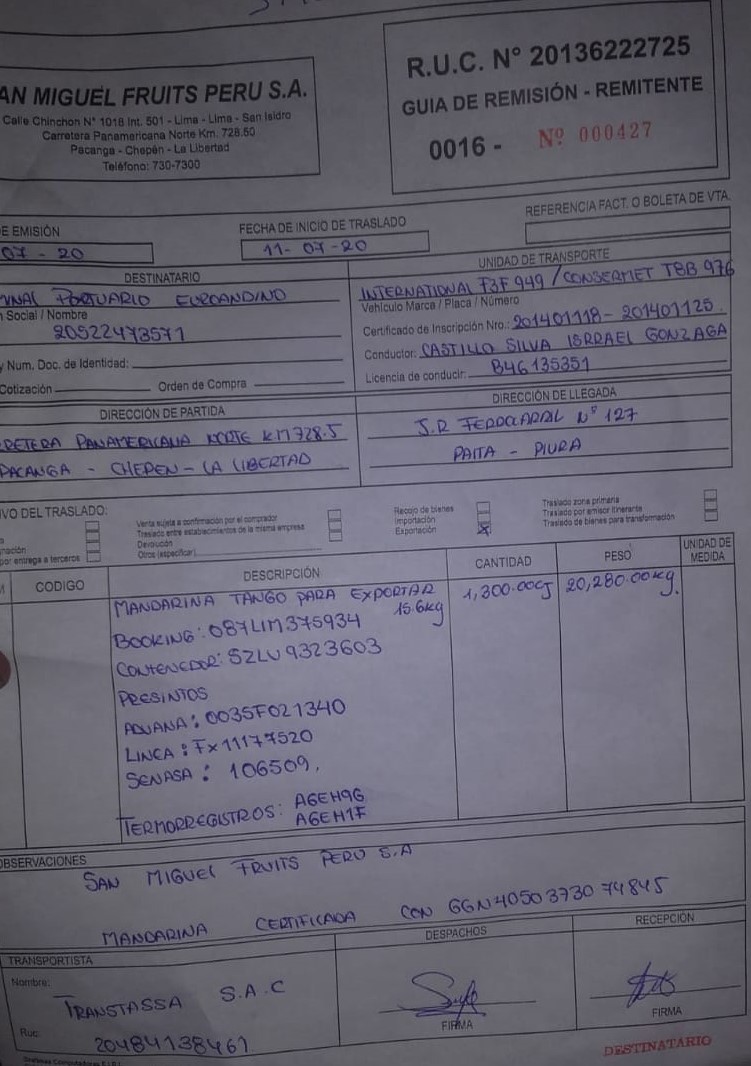 R.U.C. N° 20136222725
GUIA DE REMISIÓN - REMITENTE
0016 - Nº 000427
AN MIGUEL FRUITS PERU S.A.
Calle Chinchon N° 1018 Int. 501 - Lima - Lima - San Isidro
Carretera Panamericana Norte Km. 728.50
Pacanga - Chepén - La Libertad
Teléfono: 730-7300
E EMISIÓN
07 - 20
FECHA DE INICIO DE TRASLADO
11- 07 -20
REFERENCIA FACT. O BOLETA DE VTA.
DESTINATARIO
PORTUARIO EUROANDINO
Social / Nombre
20522473571
y Num. Doc. de Identidad:
Cotización Orden de Compra
UNIDAD DE TRANSPORTE
INTERNATIONAL F3F 949 / CONSERMET TBB 976
Vehículo Marca / Placa / Número
Certificado de Inscripción Nro.: 201401118 - 201401125
Conductor: CASTILLO SILVA ISRRAEL GONZAGA
Licencia de conducir: B46135351
DIRECCIÓN DE PARTIDA
RETERA PANAMERICANA NORTE KM 728.5
PACANGA - CHEPEN - LA LIBERTAD
DIRECCIÓN DE LLEGADA
J.R FERROCARRIL N° 127
PAITA - PIURA
IVO DEL TRASLADO:
por entrega a terceros
Venta sujeta a confirmación por el comprador
Traslado entre establecimientos de la misma empresa
Devolución
Otros (especificar)
Recojo de bienes
Importación
Exportación X
Traslado zona primaria
Traslado por emisor itinerante
Traslado de bienes para transformación
M CODIGO DESCRIPCIÓN CANTIDAD PESO UNIDAD DE MEDIDA
MANDARINA TANGO PARA EXPORTAR 1,300.00CJ 20,280.00kg.
15.6kg
BOOKING: 087LIM375934
CONTENEDOR: SZLU 9323603
PRESINTOS
ADUANA: 0035F021340
LINEA: Fx11177520
SENASA: 106509,
TERMORREGISTROS: AGEH9G
AGEH1F
OBSERVACIONES
SAN MIGUEL FRUITS PERU S.A
MANDARINA CERTIFICADA CON GGN 4050373074845
TRANSPORTISTA
Nombre:
TRANSTASSA S.A.C
Ruc: 20484138461
DESPACHOS
FIRMA
RECEPCIÓN
FIRMA
DESTINATARIO